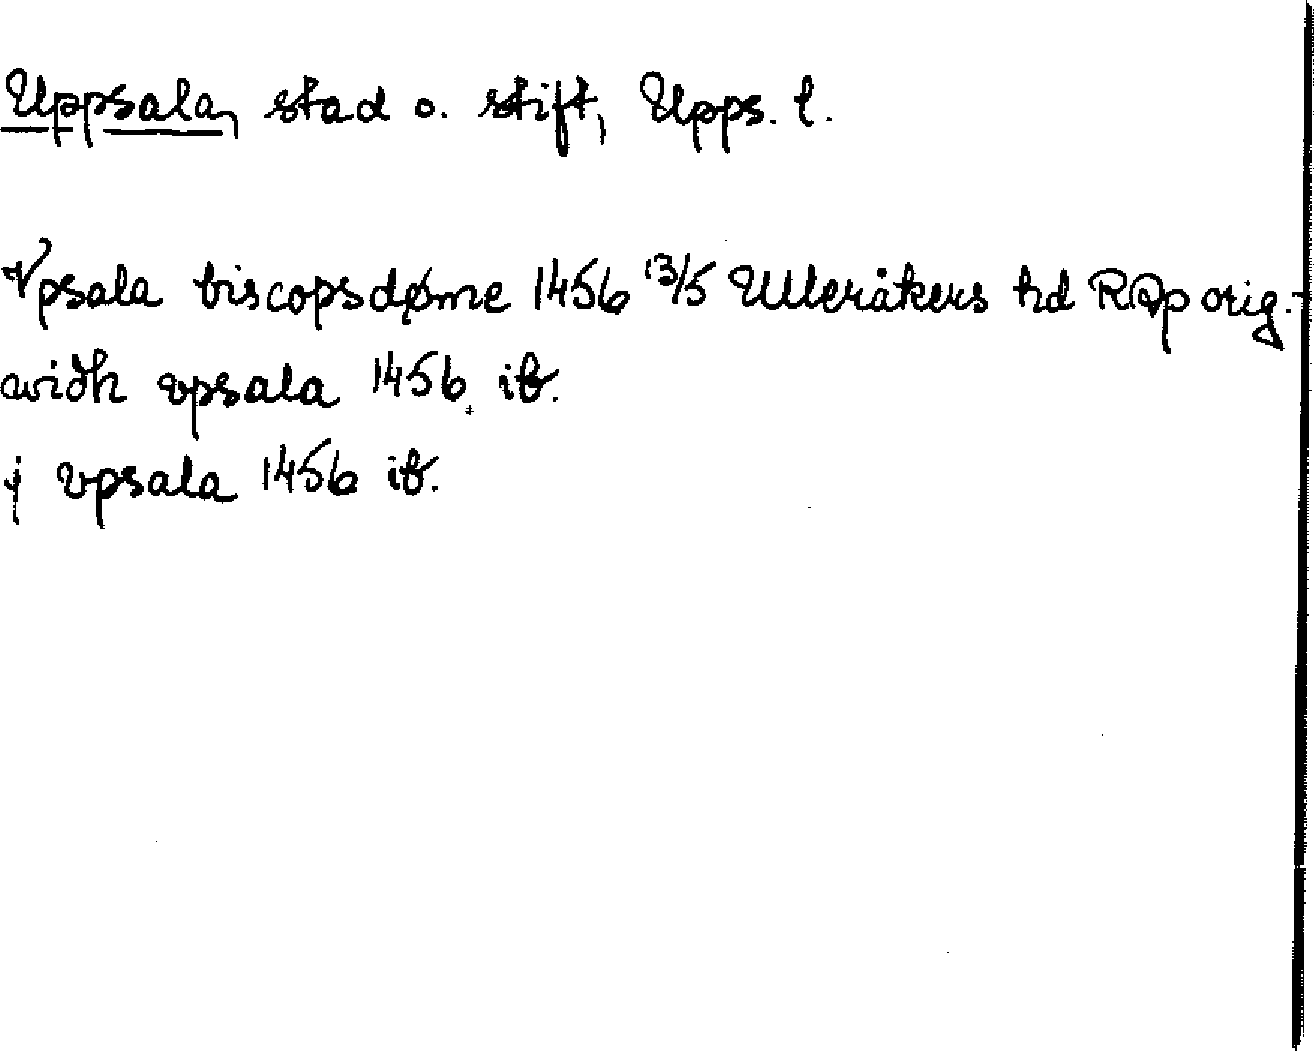 Uppsala, stad o. stift, Upps. l.
Vpsala biscopsdøme 1456 13/5 Ulleråkers hd RAp orig.
widh vpsala 1456 ib.
j vpsala 1456 ib.